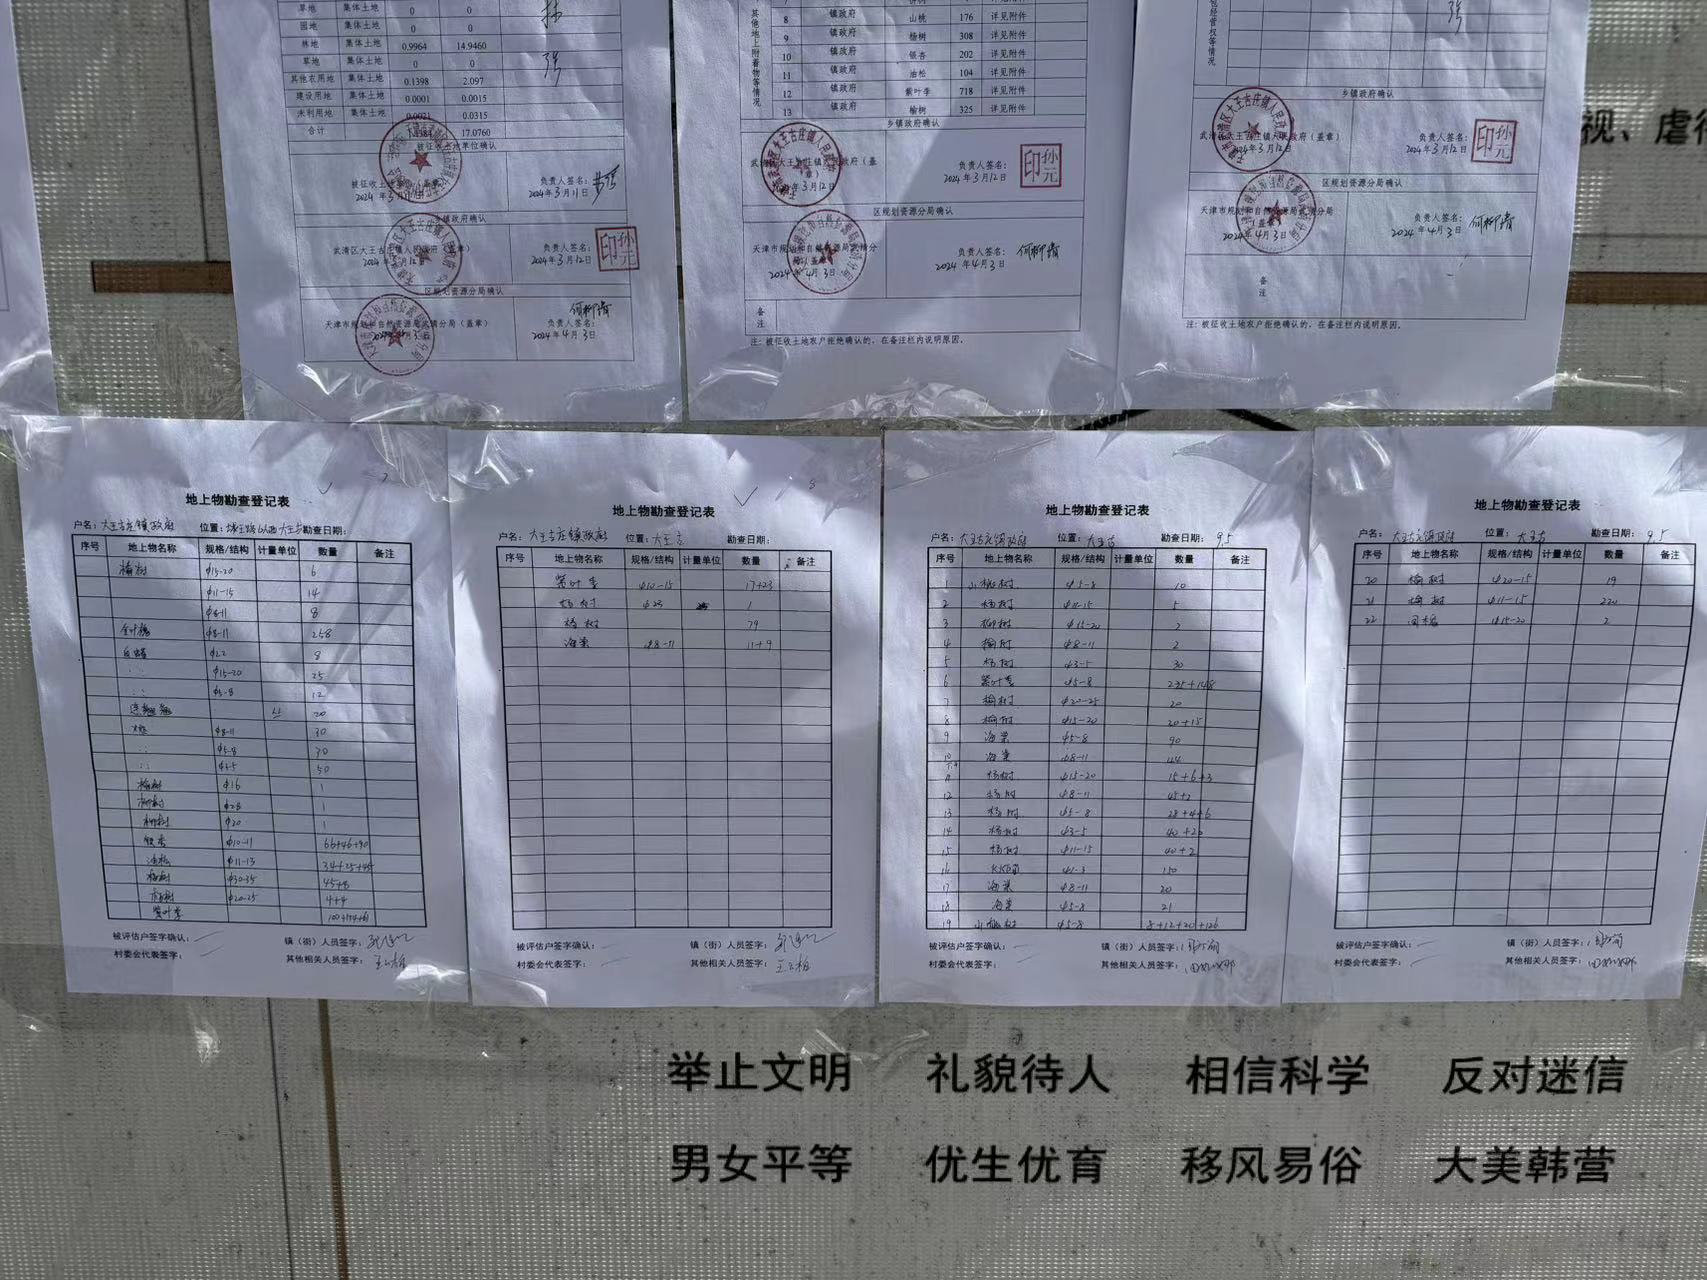 草地 集体土地 0 0
园地 集体土地 0 0
林地 集体土地 0.9964 14.9460
草地 集体土地 0 0
其他农用地 集体土地 0.1398 2.097
建设用地 集体土地 0.0001 0.0015
未利用地 集体土地 0.0021 0.0315
合计 17.0760
被征收土地单位确认
负责人签名:
2024年3月11日
乡镇政府确认
武清区大王古庄镇人民政府（盖章）
负责人签名:
2024年3月12日
区规划资源分局确认
天津市规划和自然资源局武清分局（盖章）
负责人签名:
2024年4月3日
其他地上附着物等情况
8 镇政府 山桃 176 详见附件
9 镇政府 杨树 308 详见附件
10 镇政府 银杏 202 详见附件
11 镇政府 油松 104 详见附件
12 镇政府 紫叶李 718 详见附件
13 镇政府 榆树 325 详见附件
乡镇政府确认
武清区大王古庄镇人民政府（盖章）
2024年3月12日
负责人签名:
2024年3月12日
区规划资源分局确认
负责人签名:
2024年4月3日
备注
注: 被征收土地农户拒绝确认的，在备注栏内说明原因。
包经营权等情况
乡镇政府确认
武清区大王古庄镇人民政府（盖章）
2024年3月12日
负责人签名:
2024年3月12日
区规划资源分局确认
天津市规划和自然资源局武清分局
2024年4月3日
负责人签名:
2024年4月3日
备注
注: 被征收土地农户拒绝确认的，在备注栏内说明原因。
视、虐待
地上物勘查登记表
户名: 大王古庄镇政府 位置: 勘查日期:
序号 地上物名称 规格/结构 计量单位 数量 备注
榆树 φ15-20 6
φ11-15 14
φ8-11 8
φ8-11 258
白蜡 φ22 8
φ15-20 25
φ5-8 12
连翘 20
φ8-11 30
φ5-8 30
50
φ16 1
柳树 φ28 1
柳树 φ20 1
银杏 φ10-11 66+46+90
油松 φ11-13 34+25+45
φ30-35 45+8
φ20-25 4+4
紫叶李
被评估户签字确认: 镇（街）人员签字:
村委会代表签字: 其他相关人员签字:
地上物勘查登记表
户名: 大王古庄镇政府 位置: 大王古 勘查日期:
序号 地上物名称 规格/结构 计量单位 数量 备注
紫叶李 φ10-15 17+23
杨树 φ23 1
79
海棠 φ8-11 11+9
被评估户签字确认: 镇（街）人员签字:
村委会代表签字: 其他相关人员签字:
地上物勘查登记表
户名: 大王古庄镇政府 位置: 大王古 勘查日期: 9.5
序号 地上物名称 规格/结构 计量单位 数量 备注
1 山桃树 φ5-8 10
2 杨树 φ11-15 5
3 柳树 φ15-20 2
4 榆树 φ8-11 2
5 杨树 φ3-5 30
6 紫叶李 φ5-8 235+148
7 榆树 φ20-25 20
8 榆树 φ15-20 20+15
9 海棠 φ5-8 90
10 海棠 φ8-11 44
11 杨树 φ15-20 15+6+3
12 杨树 φ8-11 45+2
13 杨树 φ5-8 28+4+6
14 杨树 φ3-5 40+26
15 杨树 φ11-15 40+2
16 φ1-3 150
17 海棠 φ8-11 20
18 海棠 φ5-8 21
19 山桃树 φ5-8 8+12+20+126
被评估户签字确认: 镇（街）人员签字:
村委会代表签字: 其他相关人员签字:
地上物勘查登记表
户名: 大王古庄镇政府 位置: 大王古 勘查日期: 9.5
序号 地上物名称 规格/结构 计量单位 数量 备注
20 榆树 φ20-15 19
21 榆树 φ11-15 220
22 国槐 φ15-20 2
被评估户签字确认: 镇（街）人员签字:
村委会代表签字: 其他相关人员签字:
举止文明 礼貌待人 相信科学 反对迷信
男女平等 优生优育 移风易俗 大美韩营